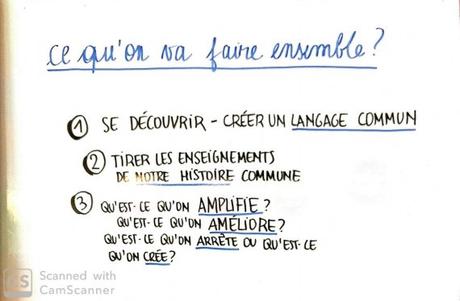 ce qu'on va faire ensemble ?
① SE DÉCOUVRIR - CRÉER UN LANGAGE COMMUN
② TIRER LES ENSEIGNEMENTS
DE NOTRE HISTOIRE COMMUNE
③ QU'EST-CE QU'ON AMPLIFIE ?
QU'EST-CE QU'ON AMÉLIORE ?
QU'EST-CE QU'ON ARRÊTE OU QU'EST-CE
QU'ON CRÉE ?
CS Scanned with
CamScanner